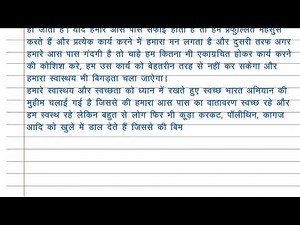 हो जाता है। यदि हमारे आस पास सफाई होती है तो हम प्रफुल्लित महसुस
करते हैं और प्रत्येक कार्य करने में हमारा मन लगता है और दुसरी तरफ अगर
हमारे आस पास गंदगी है तो चाहे हम कितना भी एकाग्रचित होकर कार्य करने
की कोशिश करे, हम उस कार्य को बेहतरीन तरह से नहीं कर सकेगा और
हमारा स्वास्थय भी बिगड़ता चला जाऐगा।
हमारे स्वास्थय और स्वच्छता को ध्यान में रखते हुए स्वच्छ भारत अभियान की
मुहीम चलाई गई है जिससे की हमारा आस पास का वातावरण स्वच्छ रहे और
हम स्वस्थ रहे लेकिन बहुत से लोग फिर भी कूड़ा करकट, पॉलीथिन, कागज
आदि को खुले में डाल देते हैं जिससे की बिम